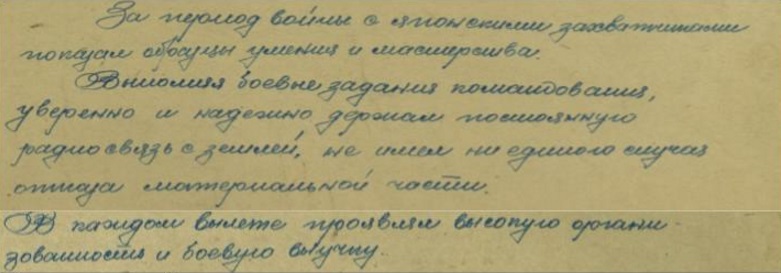 За период войны с японскими захватчиками
показал образцы умения и мастерства.
Выполняя боевые задания командования,
уверенно и надежно держал постоянную
радиосвязь с землей, не имел ни единого случая
отказа материальной части.
В каждом вылете проявлял высокую органи-
зованность и боевую выучку.